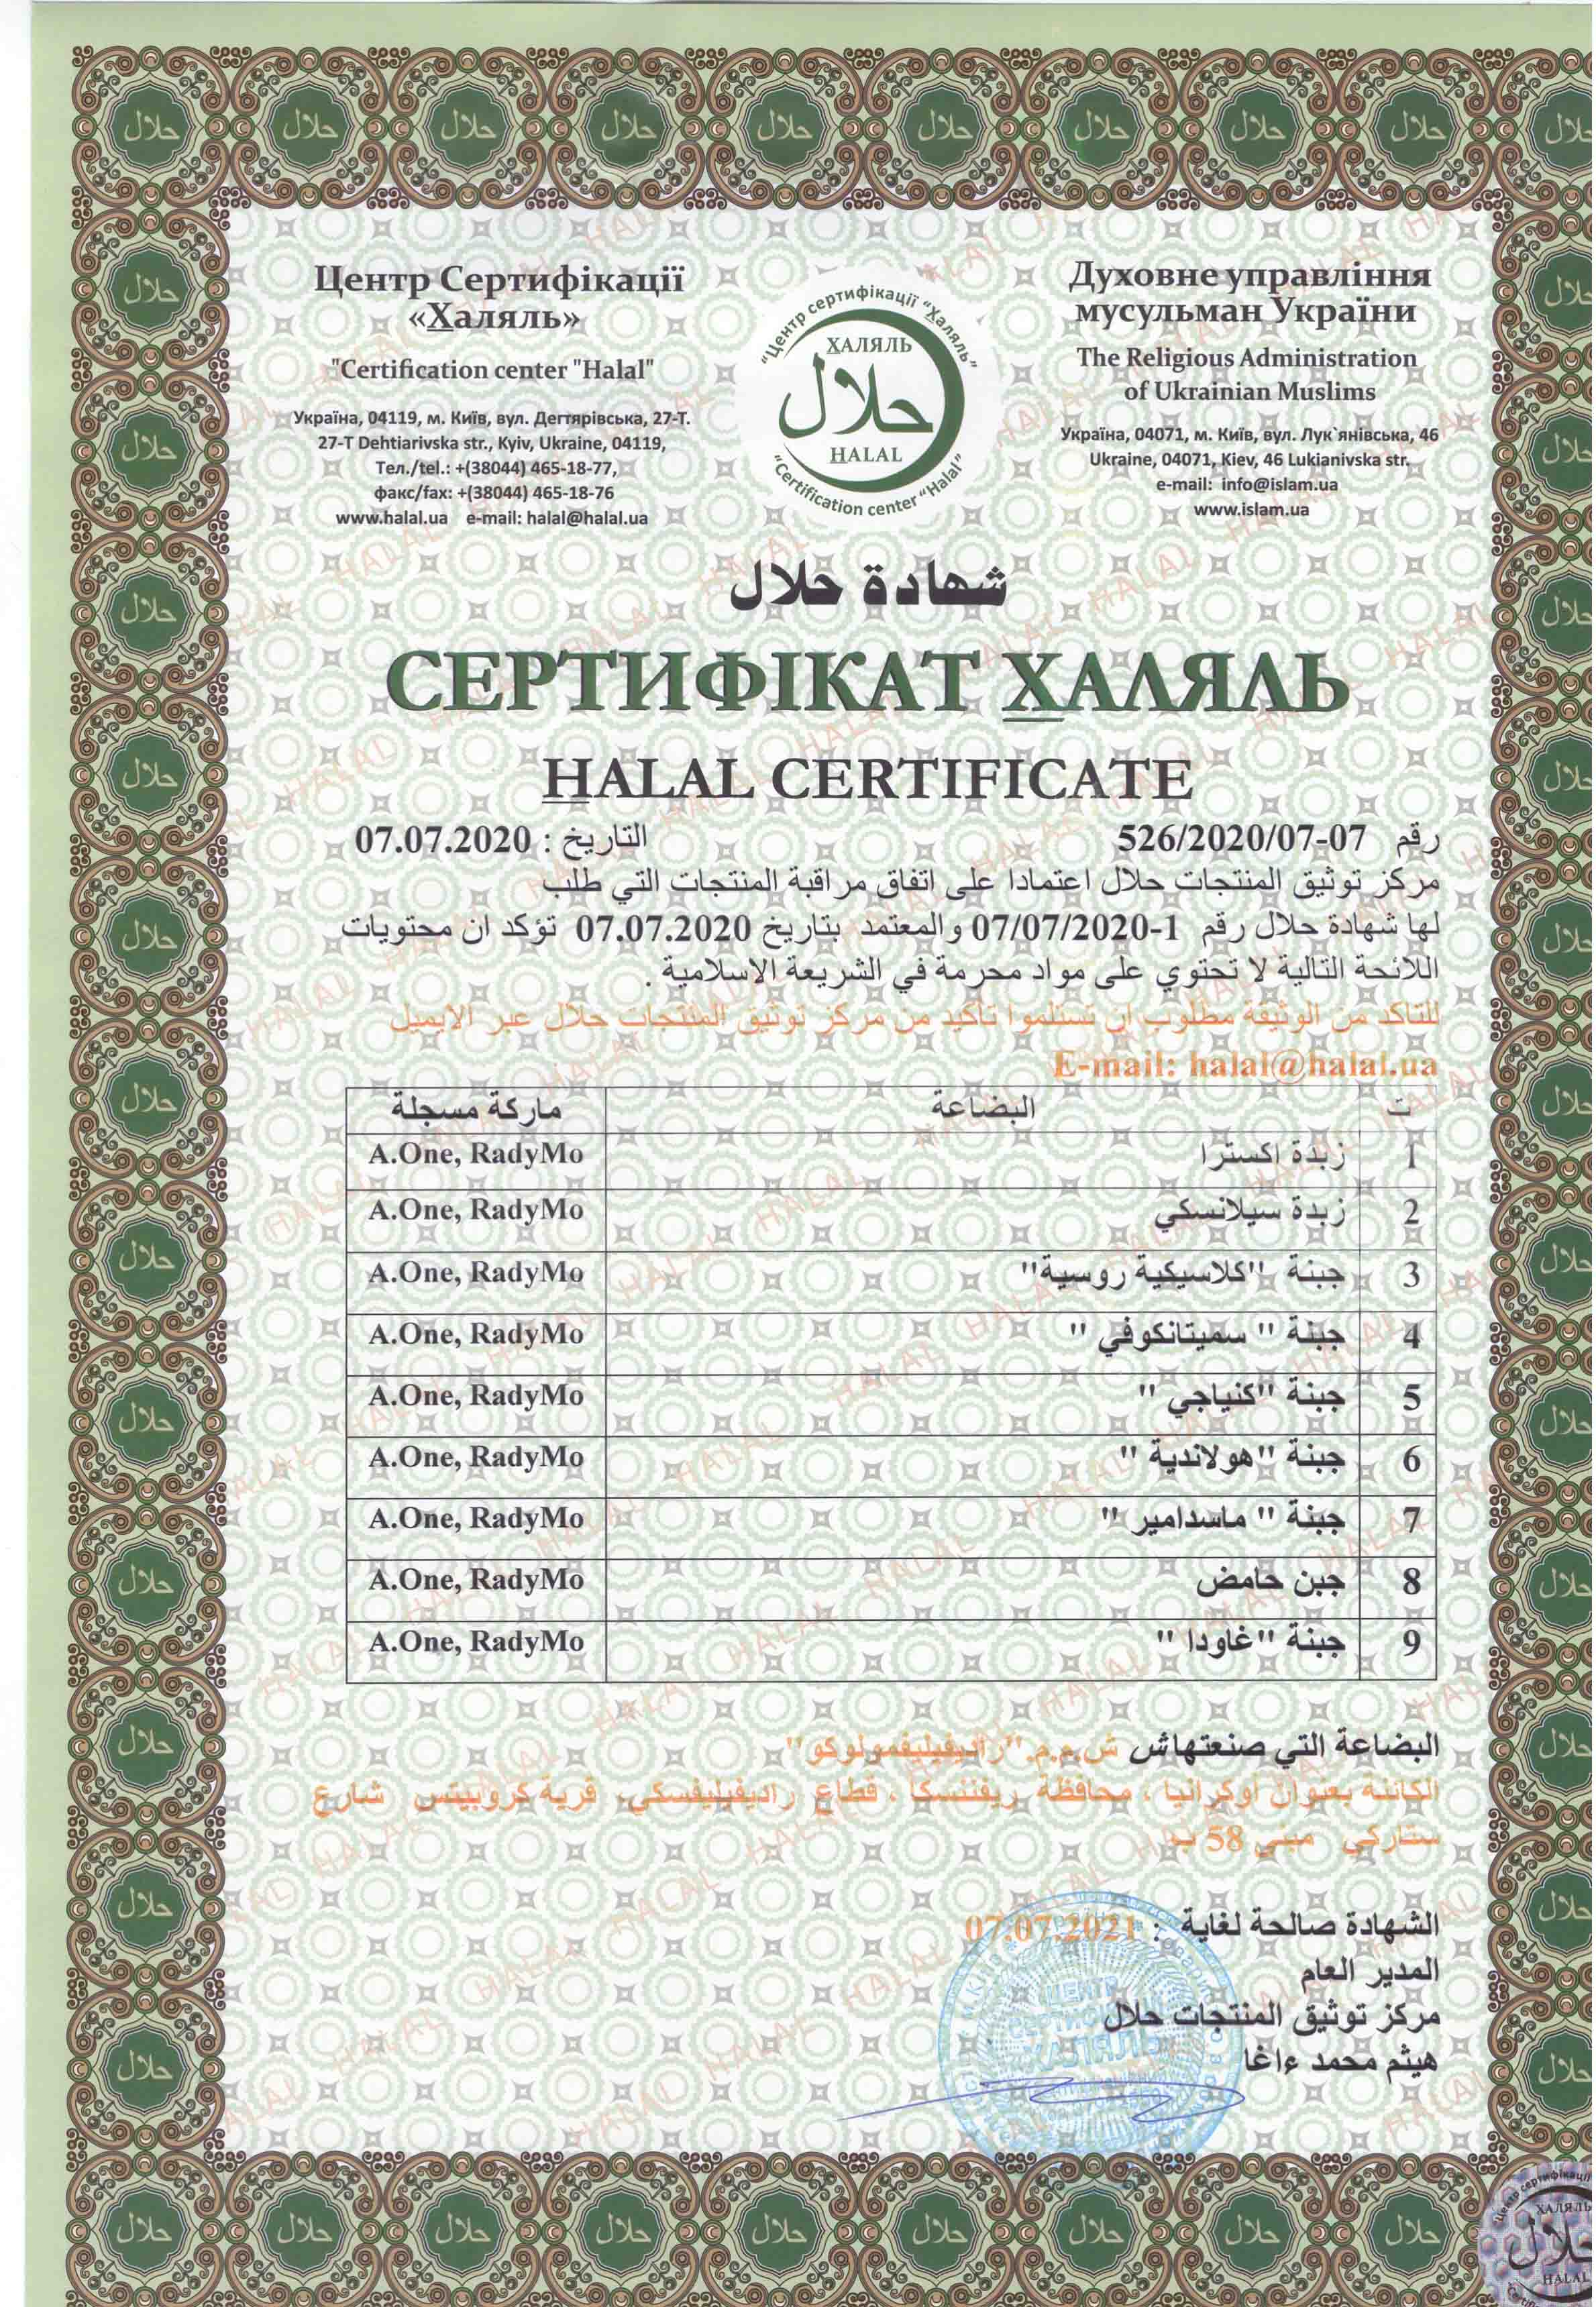 Центр Сертифікації
«Халяль»
"Certification center "Halal"
Україна, 04119, м. Київ, вул. Дегтярівська, 27-Т.
27-T Dehtiarivska str., Kyiv, Ukraine, 04119,
Тел./tel.: +(38044) 465-18-77,
факс/fax: +(38044) 465-18-76
www.halal.ua e-mail: halal@halal.ua
"Центр сертифікації "Халяль"
ХАЛЯЛЬ
حلال
HALAL
"Certification center "Halal"
Духовне управління
мусульман України
The Religious Administration
of Ukrainian Muslims
Україна, 04071, м. Київ, вул. Лук`янівська, 46
Ukraine, 04071, Kiev, 46 Lukianivska str.
e-mail: info@islam.ua
www.islam.ua
شهادة حلال
СЕРТИФІКАТ ХАЛЯЛЬ
HALAL CERTIFICATE
رقم 526/2020/07-07 التاريخ : 07.07.2020
مركز توثيق المنتجات حلال اعتمادا على اتفاق مراقبة المنتجات التي طلب
لها شهادة حلال رقم 1-07/07/2020 والمعتمد بتاريخ 07.07.2020 تؤكد ان محتويات
اللائحة التالية لا تحتوي على مواد محرمة في الشريعة الاسلامية .
للتاكد من الوثيقة مطلوب ان تستلموا تأكيد من مركز توثيق المنتجات حلال عبر الايميل
E-mail: halal@halal.ua
ت البضاعة ماركة مسجلة
1 زبدة اكسترا A.One, RadyMo
2 زبدة سيلانسكي A.One, RadyMo
3 جبنة "كلاسيكية روسية" A.One, RadyMo
4 جبنة " سميتانكوفي " A.One, RadyMo
5 جبنة "كنياجي " A.One, RadyMo
6 جبنة "هولاندية " A.One, RadyMo
7 جبنة " ماسدامير " A.One, RadyMo
8 جبن حامض A.One, RadyMo
9 جبنة "غاودا " A.One, RadyMo
البضاعة التي صنعتهاش ش.م.م."راديفيليفمولوكو"
الكائنة بعنوان أوكرانيا ، محافظة ريفننسكا ، قطاع راديفيليفسكي، قرية كروبيتس شارع
ستاركي مبني 58 ب
الشهادة صالحة لغاية : 07.07.2021
المدير العام
مركز توثيق المنتجات حلال
هيثم محمد ءاغا
ЦЕНТР
ХАЛЯЛЬ
ХАЛЯЛЬ
حلال
HALAL